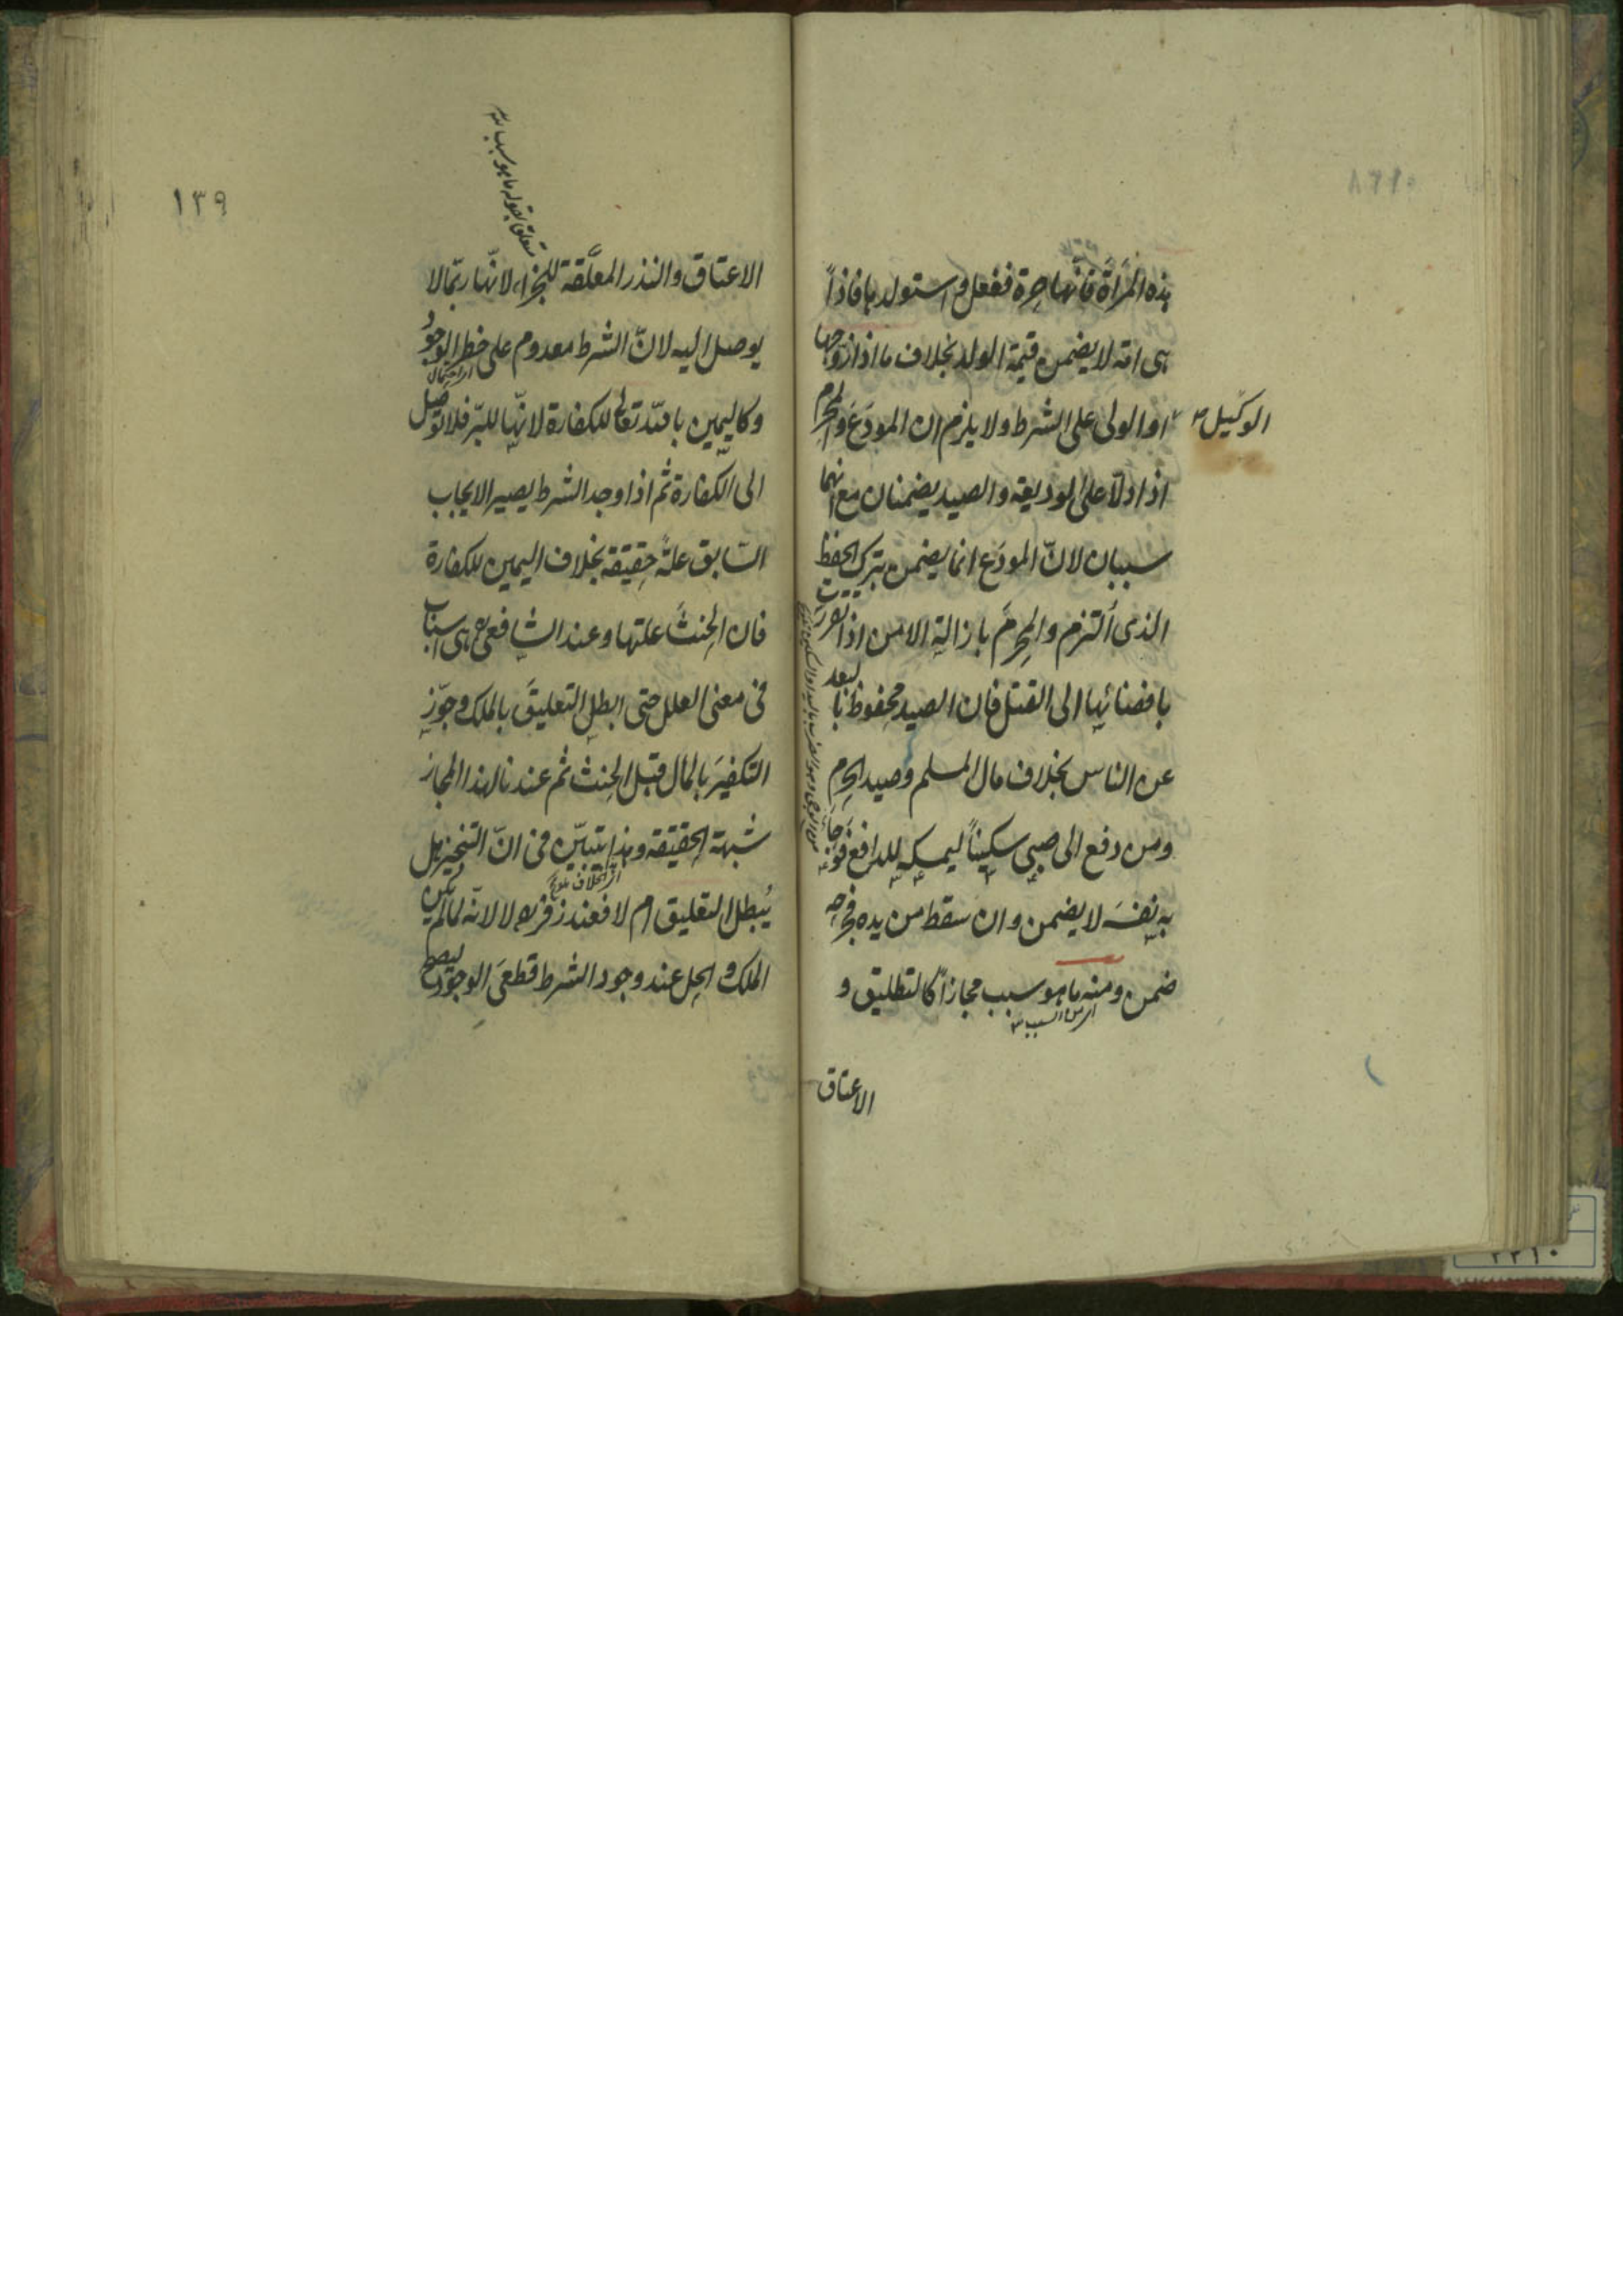 هذه المرأة فانها حرة ففعل واستولدها فاذا
هى امة لا يضمن قيمة الولد بخلاف ما اذا زوجها
الوكيل
او الولى على الشرط ولا يلزم ان المودَع والمحرم
اذا دلّا على الوديعة والصيد يضمنان مع انهما
سببان لانّ المودَع انما يضمن بترك الحفظ
الذى التزم والمحرمَ بازالة الامن اذا تقررت
بافضائها الى القتل فان الصيد محفوظ بالبعد
عن الناس بخلاف مال المسلم وصيد الحرم
ومن دفع الى صبى سكينًا ليمسكه للدافع فوجأ
به نفسَه لا يضمن وان سقط من يده فجرحه
ضمن ومنه ما هو سبب مجازًا كالتطليق و
اى من السبب
الاعتاق
١٣٩
متعلق بقوله ما هو سبب
الاعتاق والنذر المعلّقة للجزاء لانّها ربّما لا
يوصل اليه لانّ الشرط معدوم على خطر الوجود
اى احتمال
وكاليمين بالله تعالى للكفارة لانّها للبرّ فلا توصل
الى الكفارة ثم اذا وجد الشرط يصير الايجاب
السّابق علةً حقيقة بخلاف اليمين للكفارة
فان الحِنثَ علتها وعند الشافعى هى اسباب
فى معنى العلل حتى ابطل التعليقَ بالملك وجوّز
التكفيرَ بالمال قبل الحنث ثم عندنا لهذا المجاز
شبهة الحقيقة وهذا يتبيّن فى انّ التنجيز هل
اثر الخلاف
يُبطل التعليق ام لا فعند زفر لا لانّه لما لم يكن
الملك والحل عند وجود الشرط قطعىَ الوجود ليصح
٢٢١٠